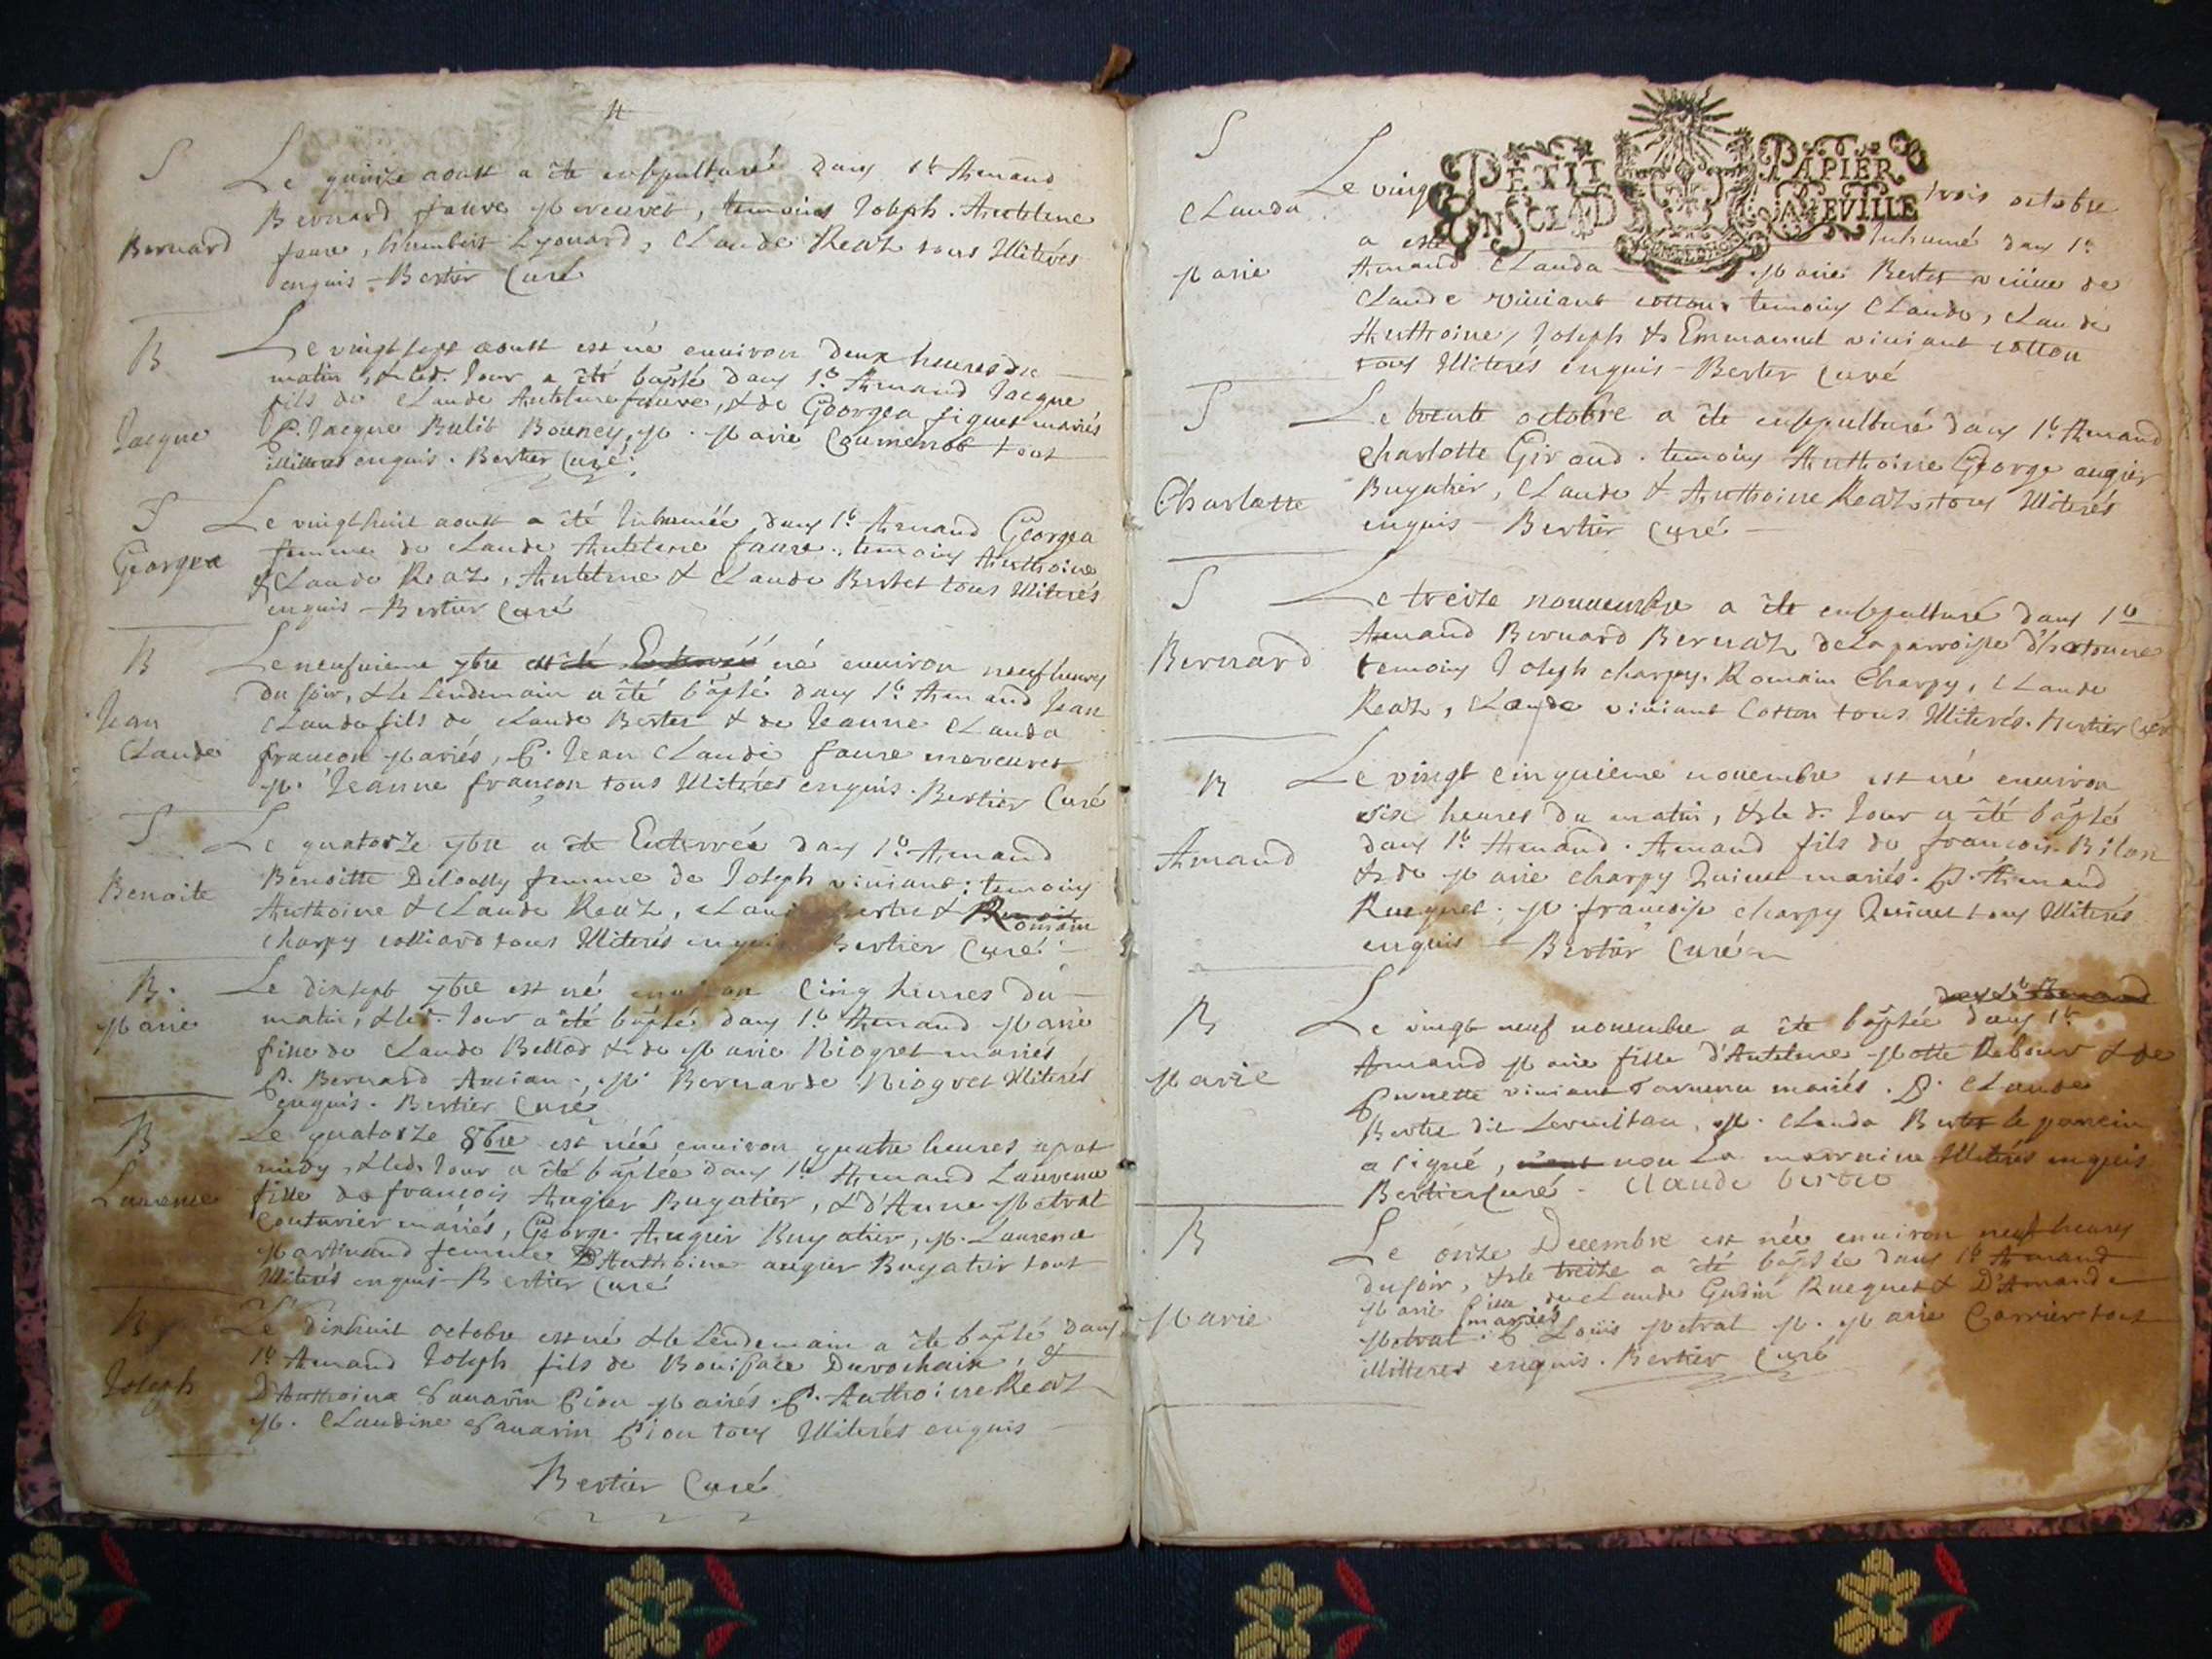 4
S
Bernard
Le quinze aoust a été ensepulturé dans St Armand
Bernard faure mereuret, temoins Joseph. Anthelme
faure, humbert Lyonard, Claude Reaz tous Illiterés
enquis - Bertier Curé
B
Jacque
Le vingt sept aoust est né environ deux heures du
matin, & led. Jour a été baptsé dans St Armand Jacque
fils de Claude Anthelme faure, & de Georgea figuet mariés
P. Jacque Bulit Bouncy, M. Marie Coumenot tout
illitteres enquis. Bertier Curé.
S
Georgea
Le vingt huit aoust a été Inhumée dans St Armand Georgea
femme de Claude Anthelme faure, temoins Anthoine
& Claude Reaz, Anthelme & Claude Bertet tous Illiterés
enquis - Bertier Curé
B
Jean
Claude
Le neufuieme 7bre né environ neuf heures
du soir, & le Lendemain a été baptsé dans St Armand Jean
Claude fils de Claude Bertet & de Jeanne Clauda
françon Mariés, P. Jean Claude faure mereuret
M. Jeanne françon tous Illiterés enquis. Bertier Curé
S
Benoite
Le quatorze 7bre a été Enterrée dans St Armand
Benoitte femme de Joseph viviant; temoins
Anthoine & Claude Reaz, & Romain
charpy colliard tous Illiterés enquis Bertier Curé
B.
Marie
Le dix sept 7bre est né environ Cinq heures du
matin, & led. Jour a été baptsé dans St Armand Marie
fille de Claude Bellod & de Marie Niogret mariés
P. Bernard Ancian, M. Bernarde Niogret Illiterés
enquis. Bertier Curé
B
Laurence
Le quatorze 8bre est née environ quatre heures apret
midy, & led. Jour a été baptsée dans St Armand Laurence
fille de françois Augier Buyatier, & d'Anne Metral
Couturier mariés, George Augier Buyatier, M. Laurence
Martinand femme D'Anthoine augier Buyatier tout
Illiterés enquis - Bertier Curé
B
Joseph
Le dixhuit octobre est né & le Lendemain a été baptsé dans
St Armand Joseph fils de Boniface Durochaix, &
D'Anthoina Savarin Pion Mariés. P. Anthoine Reaz
M. Claudine Savarin Pion tous Illiterés enquis
Bertier Curé
S
Clauda
Marie
PETIT PAPIER
Le vingt trois octobre
a esté Inhumé dans St
Armand Clauda Marie Bertet veüve de
Claude viviant cotton. temoins Claude, Claude
Anthoine, Joseph & Emmanuel viviant cotton
tous Illiterés enquis - Bertier Curé
S
Charlotte
Le trente octobre a été ensepulturé dans St Armand
Charlotte Giroud. temoins Anthoine George augier
Buyatier, Claude & Anthoine Reaz, tous Illiterés
enquis - Bertier Curé -
S
Bernard
Le treize nouvembre a été ensepulturé dans St
Armand Bernard Bernaz de La parroisse
temoins Joseph charpy, Romain Charpy, Claude
Reaz, Claude viviant Cotton tous Illiterés. Bertier Curé
B
Armand
Le vingt cinquieme novembre est né environ
six heures du matin, & le d. Jour a été baptsé
dans St Armand. Armand fils de françois Bilon
& de Marie charpy Quinet mariés. P. Armand
Ruequet. M. françoise charpy Quinet tous Illiterés
enquis - Bertier Curé
B
Marie
Le vingt neuf novembre a été baptsée dans St
Armand Marie fille d'Anthelme Motte Rebour & de
Pernette viviant mariés. P. Claude
Bertet dit , M. Clauda Bertet le parrein
a signé, non La marraine Illiterés enquis
Bertier Curé - claude bertet
B
Marie
Le onze Decembre est née environ neuf heures
du soir, & le treize a été baptsée dans St Armand
Marie fille de Claude Gudin Ruequet & D'Armande
Metral mariés. P. Loüis Metral M. Marie Carrier tout
illitteres enquis. Bertier Curé